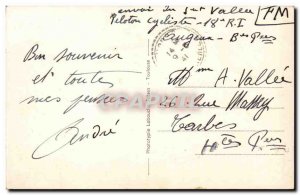 envoi du Sgt Vallée
Peloton cycliste - 18e R.I
FM
Bses Pyr
Bon souvenir
et toutes
mes pensées
André
Mme A. Vallée
26 Rue Massey
Tarbes
Htes Pyr
Phototypie Labouche Frères - Toulouse